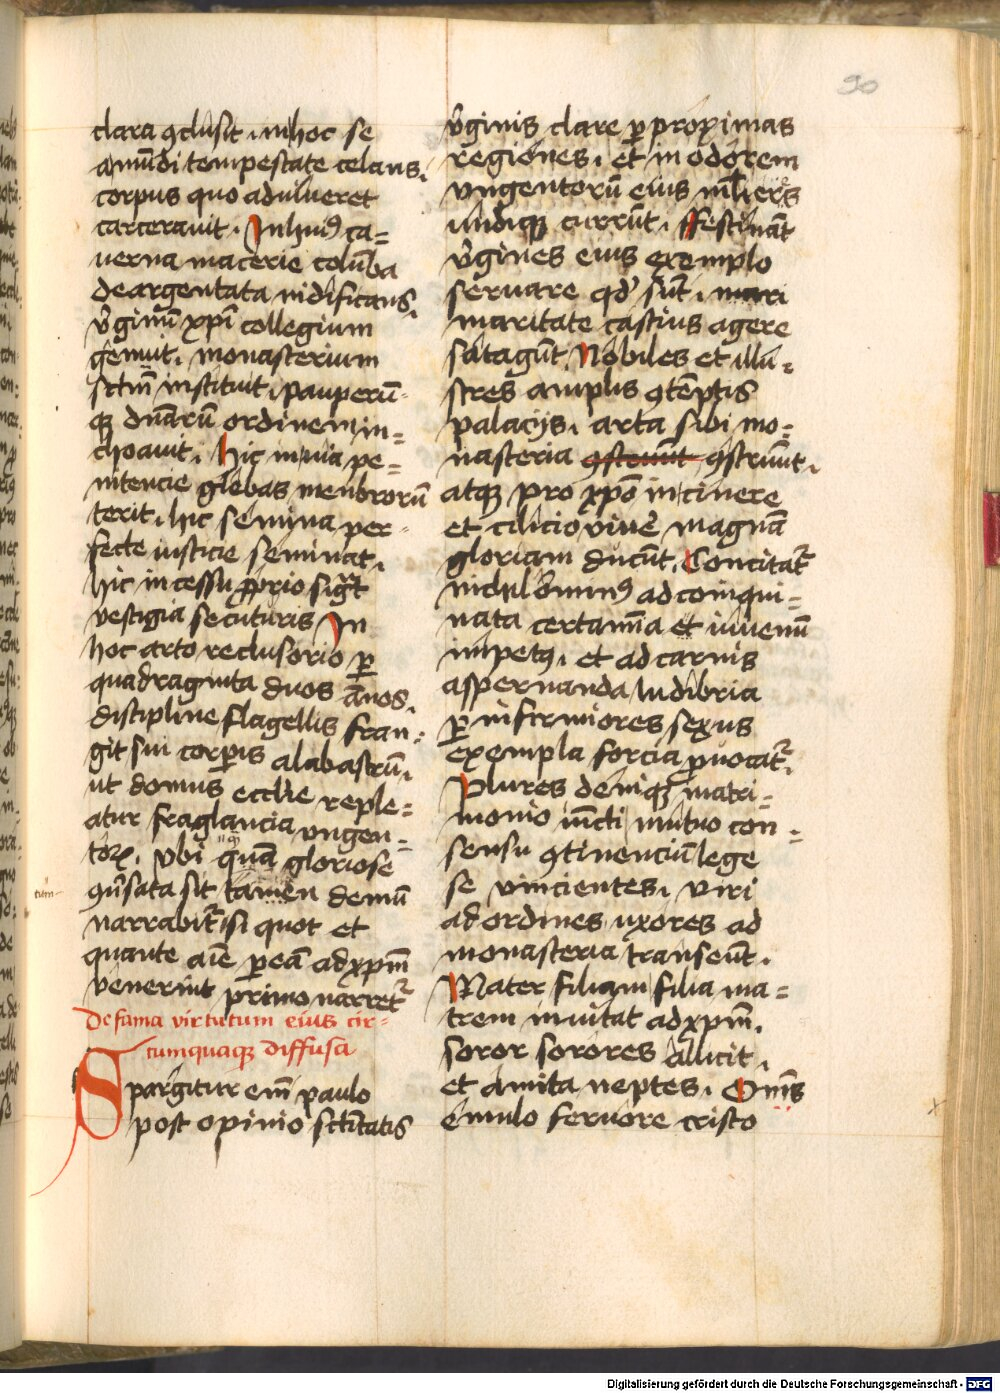 90
clara ꝯclusit. in hoc se
a mūdi tempestate celans.
corpus quo adulueret
carceravit. In huiꝰ ca=
verna macerie colūba
deargentata nidificans.
v̄ginū xp̄i collegium
genuit. monasterium
sctm̄ instituit. pauperū
qꝫ dn̄arū ordinem in=
choavit. hic in via pe=
nitencie glebas menbrorū
terit. hic semina per=
fecte iusticie seminat.
hic incessu ꝓprio sig̅t
vestigia secuturis In
hoc arto reclusorio ꝑ
quadraginta duos ānos.
discipline flagellis fran=
git sui corꝑis alabastrū.
ut domus ecclie reple=
atur fraglancia vngen=
toꝝ. vbi quā gloriose
ꝯūsata sit tamen demū
narrabitᷣ si quot et
quante aīe ꝑ eā ad xp̄m
venerint primo narretᷣ
De fama virtutum eius cir=
cumquaqꝫ diffusa
Spargitur em̄ paulo
post opinio sctītatis
v̄ginis clare ꝑ proximas
regiones. et in odorem
vngentorū eius mulieres
undiqꝫ currūt. ffestināt
v̄gines eius exemplo
servare qd̓ sūt. mari
maritate castius agere
satagūt. Nobiles et illu=
stres amplis ꝯtēptis
palacijs. arta sibi mo=
nasteria ꝯstruūt ꝯstruūt.
atqꝫ pro xp̄o in cinere
et cilicio viu̓e magnā
gloriam ducūt. Concitatᷣ
nichilominꝰ ad coinqui=
nata certamīa et iuvenū
impetꝰ. et ad carnis
aspernanda ludibria
ꝑ infirmiores sexus
exempla forcia ꝓvocatᷣ.
Plures deniqꝫ matri=
monio iūcti mutuo con=
sensu ꝯtinenciū lege
se vincientes. viri
ad ordines uxores ad
monasteria transeūt.
Mater filiam filia ma=
trem invitat ad xp̄m.
soror sorores allicit.
et amita neptes. Om̄s
emulo fervore cristo
Digitalisierung gefördert durch die Deutsche Forschungsgemeinschaft - DFG